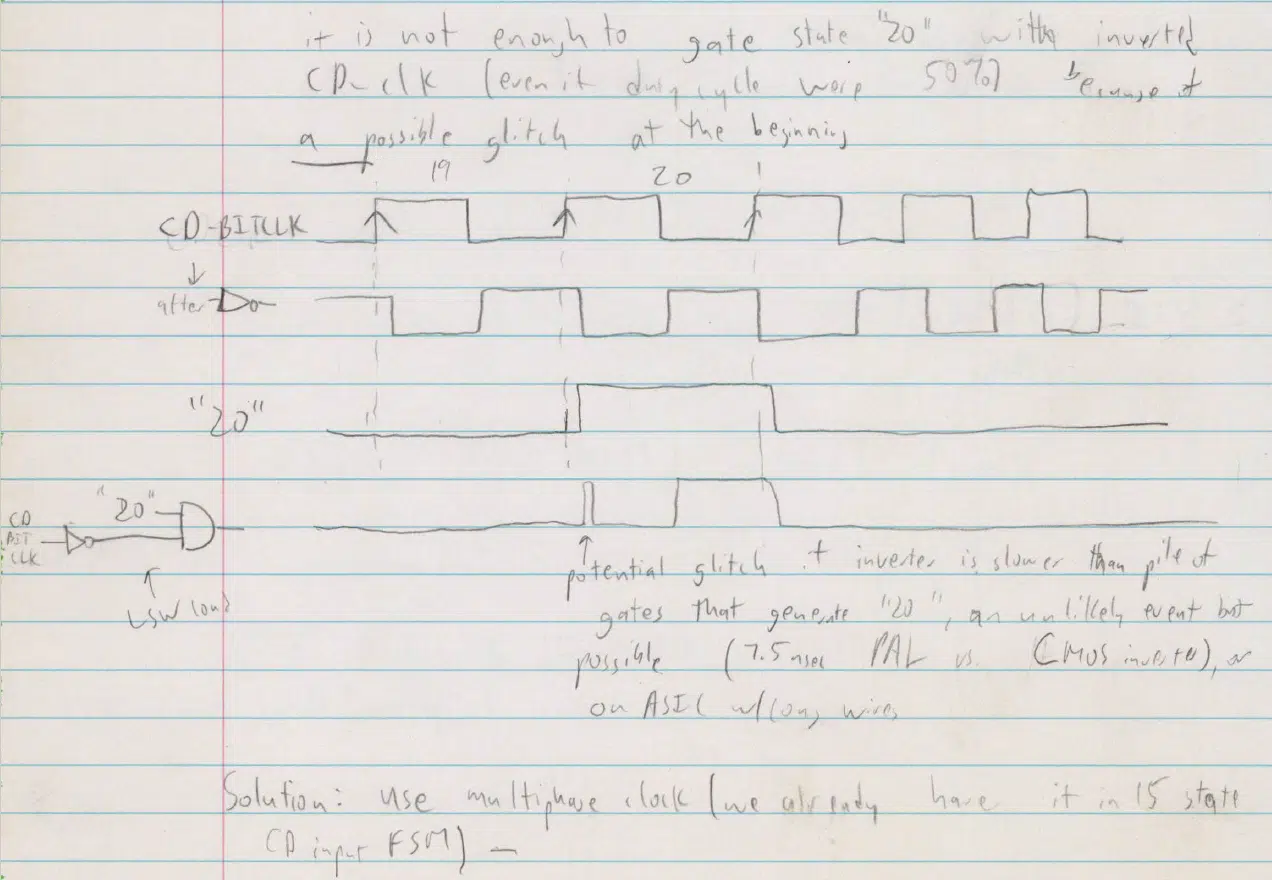 it is not enough to gate state "20" with inverted
CD-clk (even if duty cycle were 50%) because of
a possible glitch at the beginning
19 20
CD-BITCLK
after
"20"
"20"
CD
BIT
CLK
LSW load
potential glitch if inverter is slower than pile of
gates that generate "20", an unlikely event but
possible (7.5 nsec PAL vs. CMOS inverter), or
on ASIC w/long wires
Solution: use multiphase clock (we already have it in 15 state
CD input FSM) –